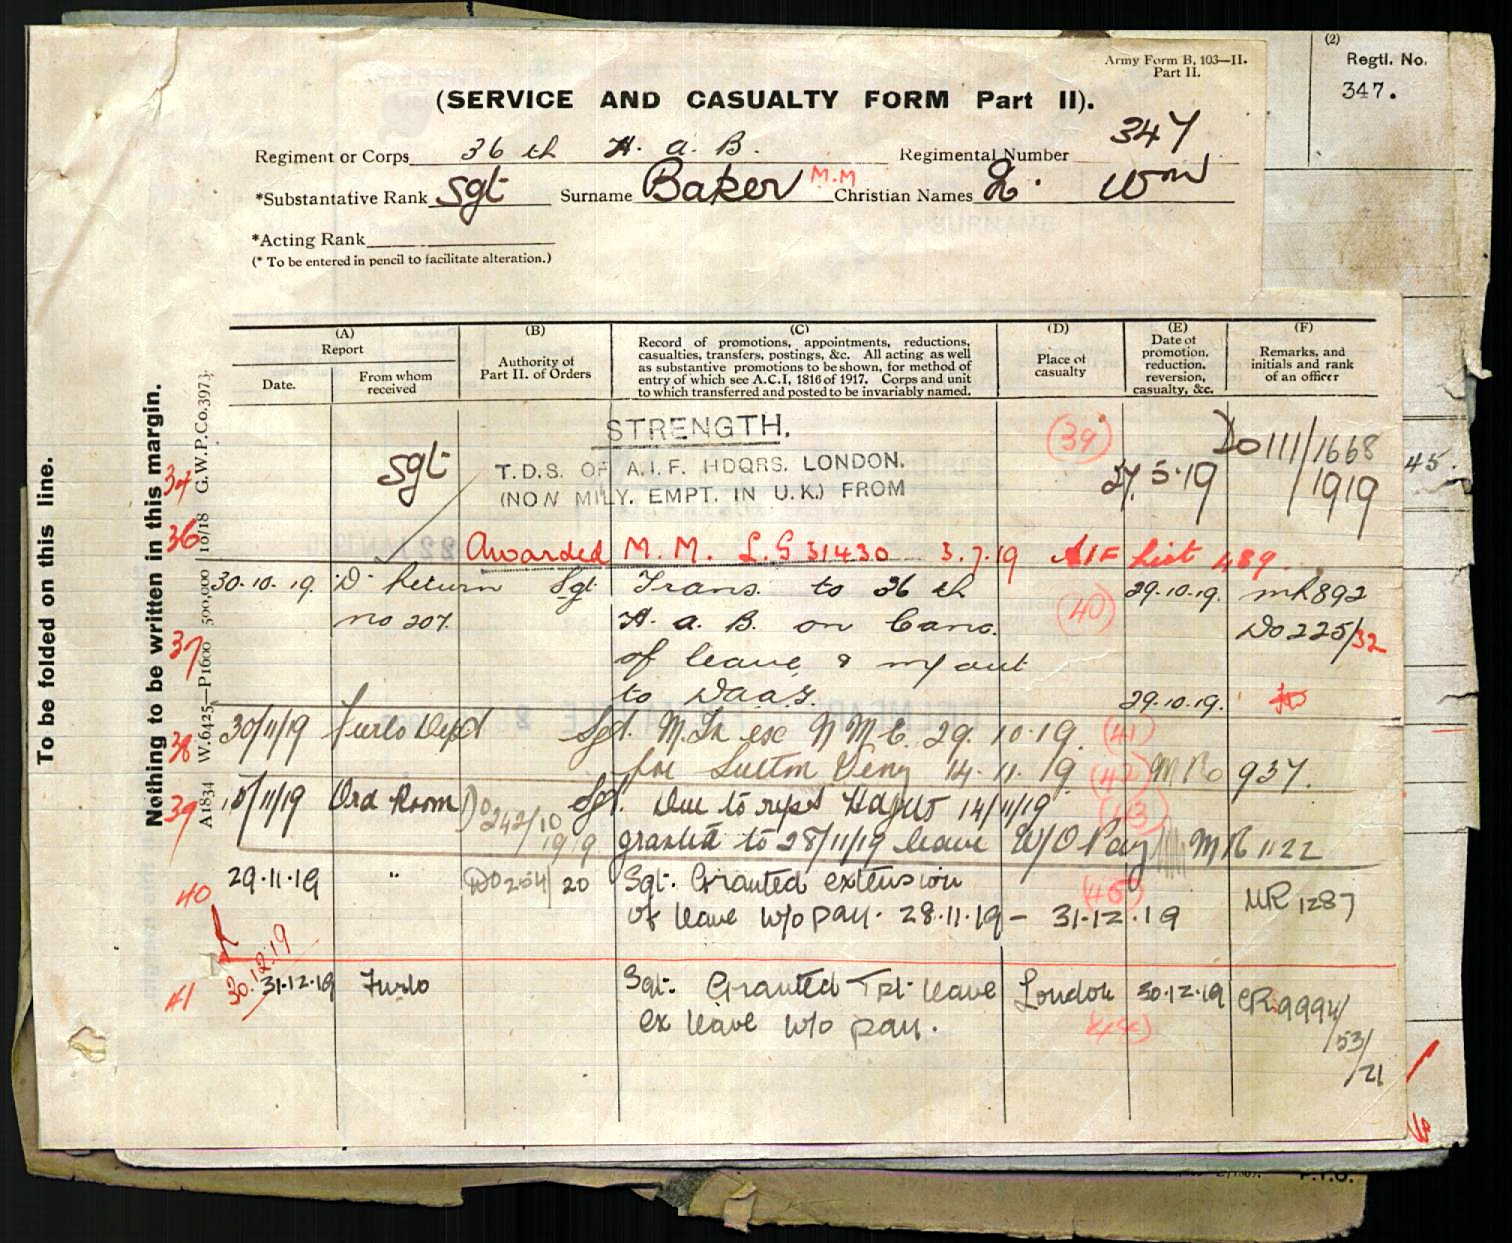 Army Form B. 103—II.
Part II.
(2)
Regtl. No.
347.
(SERVICE AND CASUALTY FORM Part II).
Regiment or Corps 36 th H. a. B. Regimental Number 347
*Substantative Rank Sgt Surname Baker M.M Christian Names Wm
*Acting Rank
(* To be entered in pencil to facilitate alteration.)
To be folded on this line.
Nothing to be written in this margin.
A1834 W.6425—P1600 500,000 10/18 G.W.P.Co.3973
(A)
Report
Date.
From whom
received
(B)
Authority of
Part II. of Orders
(C)
Record of promotions, appointments, reductions,
casualties, transfers, postings, &c. All acting as well
as substantive promotions to be shown, for method of
entry of which see A.C.I, 1816 of 1917. Corps and unit
to which transferred and posted to be invariably named.
(D)
Place of
casualty
(E)
Date of
promotion,
reduction,
reversion,
casualty, &c.
(F)
Remarks, and
initials and rank
of an officer
STRENGTH.
34 Sgt T.D.S. OF A.I.F. HDQRS. LONDON. (39) 27.5.19 Do 111/1668
(NON MILY. EMPT. IN U.K.) FROM /1919
45.
36 Awarded M.M. L.G 31430 3.7.19 AIF List 489.
30.10.19. D. Return Sgt Trans. to 36 th 29.10.19. MR 892
no 207. H. a. B. on Canc. (40) Do 225/32
37 of leave & m/out
to D.a.a.G. 29.10.19.
38 30/11/19 Furlo Dept Sgt. M. In exc N M E. 29.10.19. (41)
for Sutton Veny 14.11.19. (42) MRo 937.
39 15/11/19 Ord Room Do 242/10 Sgt. Due to rept Hdqrs 14/11/19 (43)
1919 granted to 28/11/19 leave W/O Pay MR 1122
40 29.11.19 " Do 254/20 Sgt. Granted extension (45)
of leave w/o pay. 28.11.19 – 31.12.19 MR 1287
30.12.19
41 31.12.19 Furlo Sgt. Granted Tpt. leave London 30.12.19 CR.9994/
ex leave w/o pay. (44) 53/
21
P.T.O.